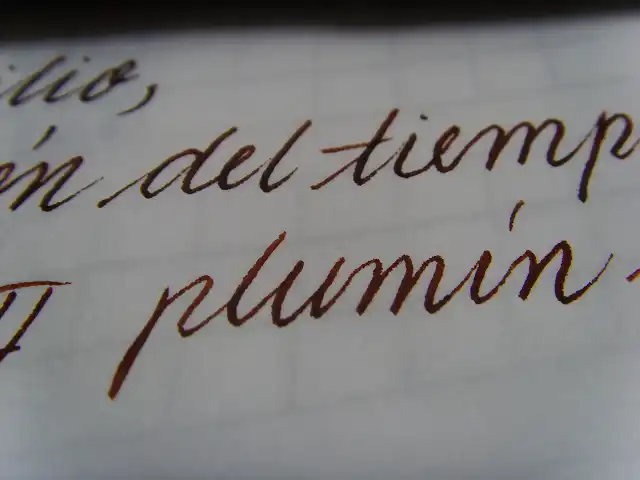 ilio,
én del tiemp
II plumín